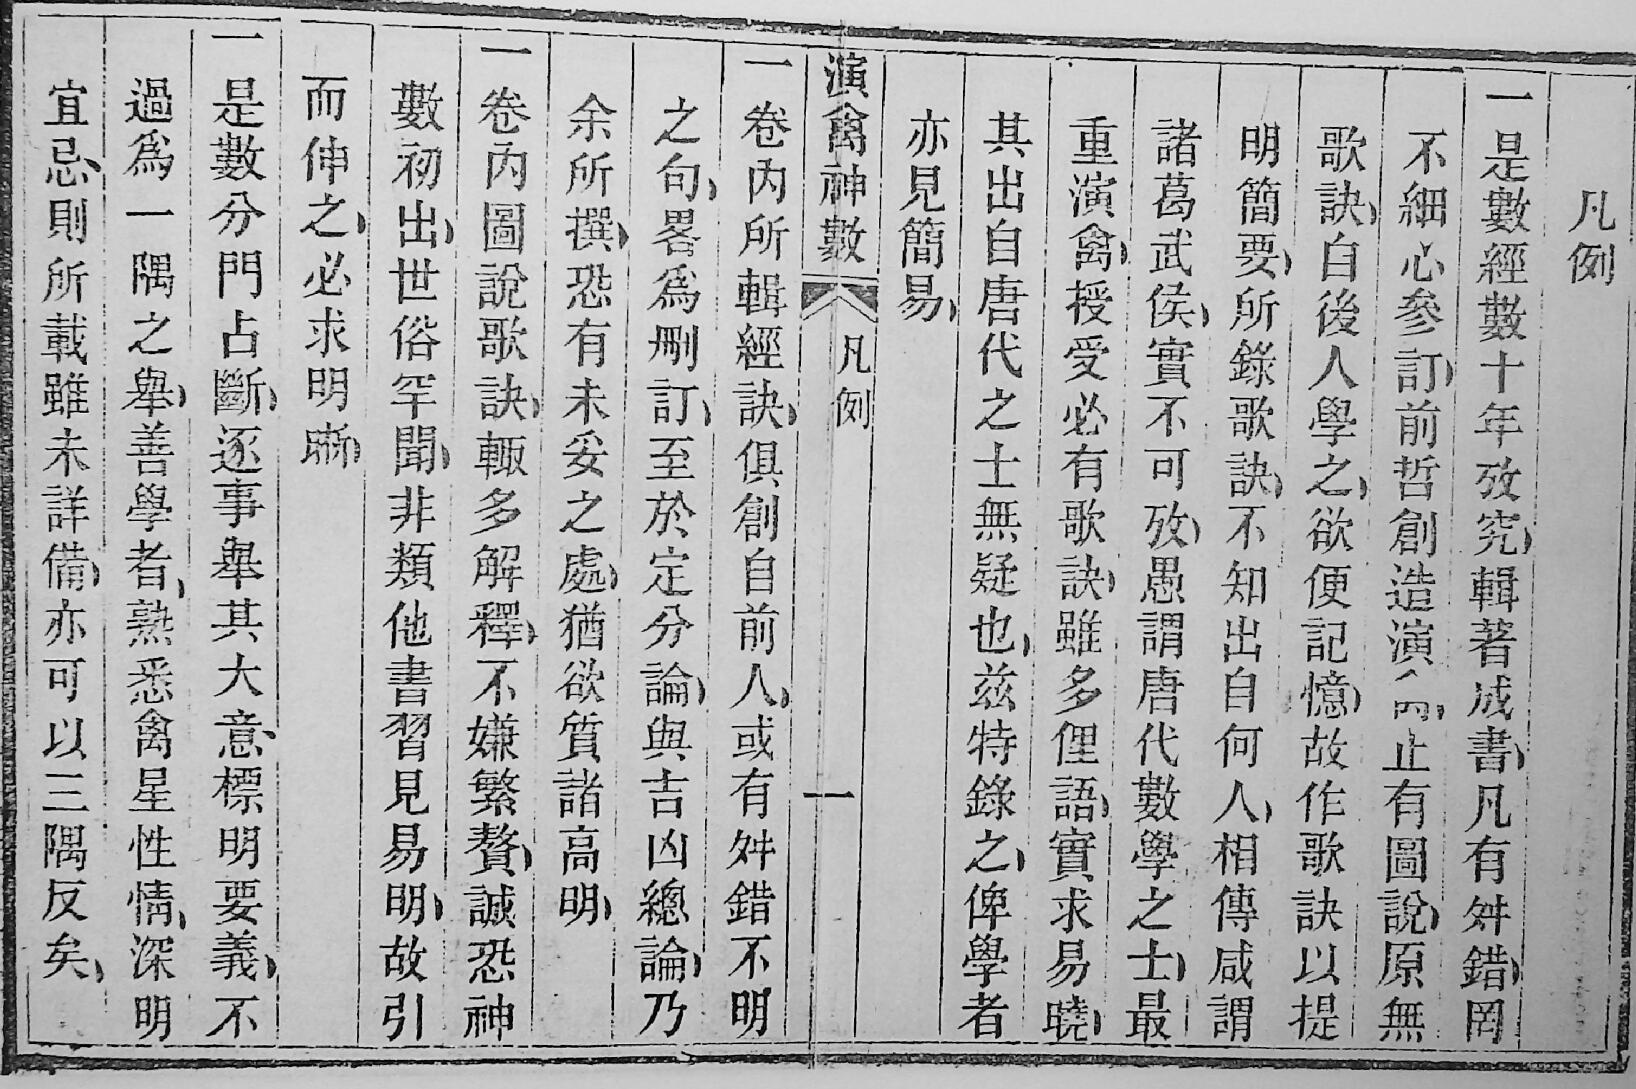 凡例
一是數經數十年攷究輯著成書凡有舛錯罔
不細心參訂前哲創造演禽止有圖說原無
歌訣自後人學之欲便記憶故作歌訣以提
明簡要所錄歌訣不知出自何人相傳咸謂
諸葛武侯實不可攷愚謂唐代數學之士最
重演禽授受必有歌訣雖多俚語實求易曉
其出自唐代之士無疑也茲特錄之俾學者
亦見簡易
演禽神數 凡例 一
一卷內所輯經訣俱創自前人或有舛錯不明
之句畧為刪訂至於定分論與吉凶總論乃
余所撰恐有未妥之處猶欲質諸高明
一卷內圖說歌訣輙多解釋不嫌繁贅誠恐神
數初出世俗罕聞非類他書習見易明故引
而伸之必求明晰
一是數分門占斷逐事舉其大意標明要義不
過為一隅之舉善學者熟悉禽星性情深明
宜忌則所載雖未詳備亦可以三隅反矣